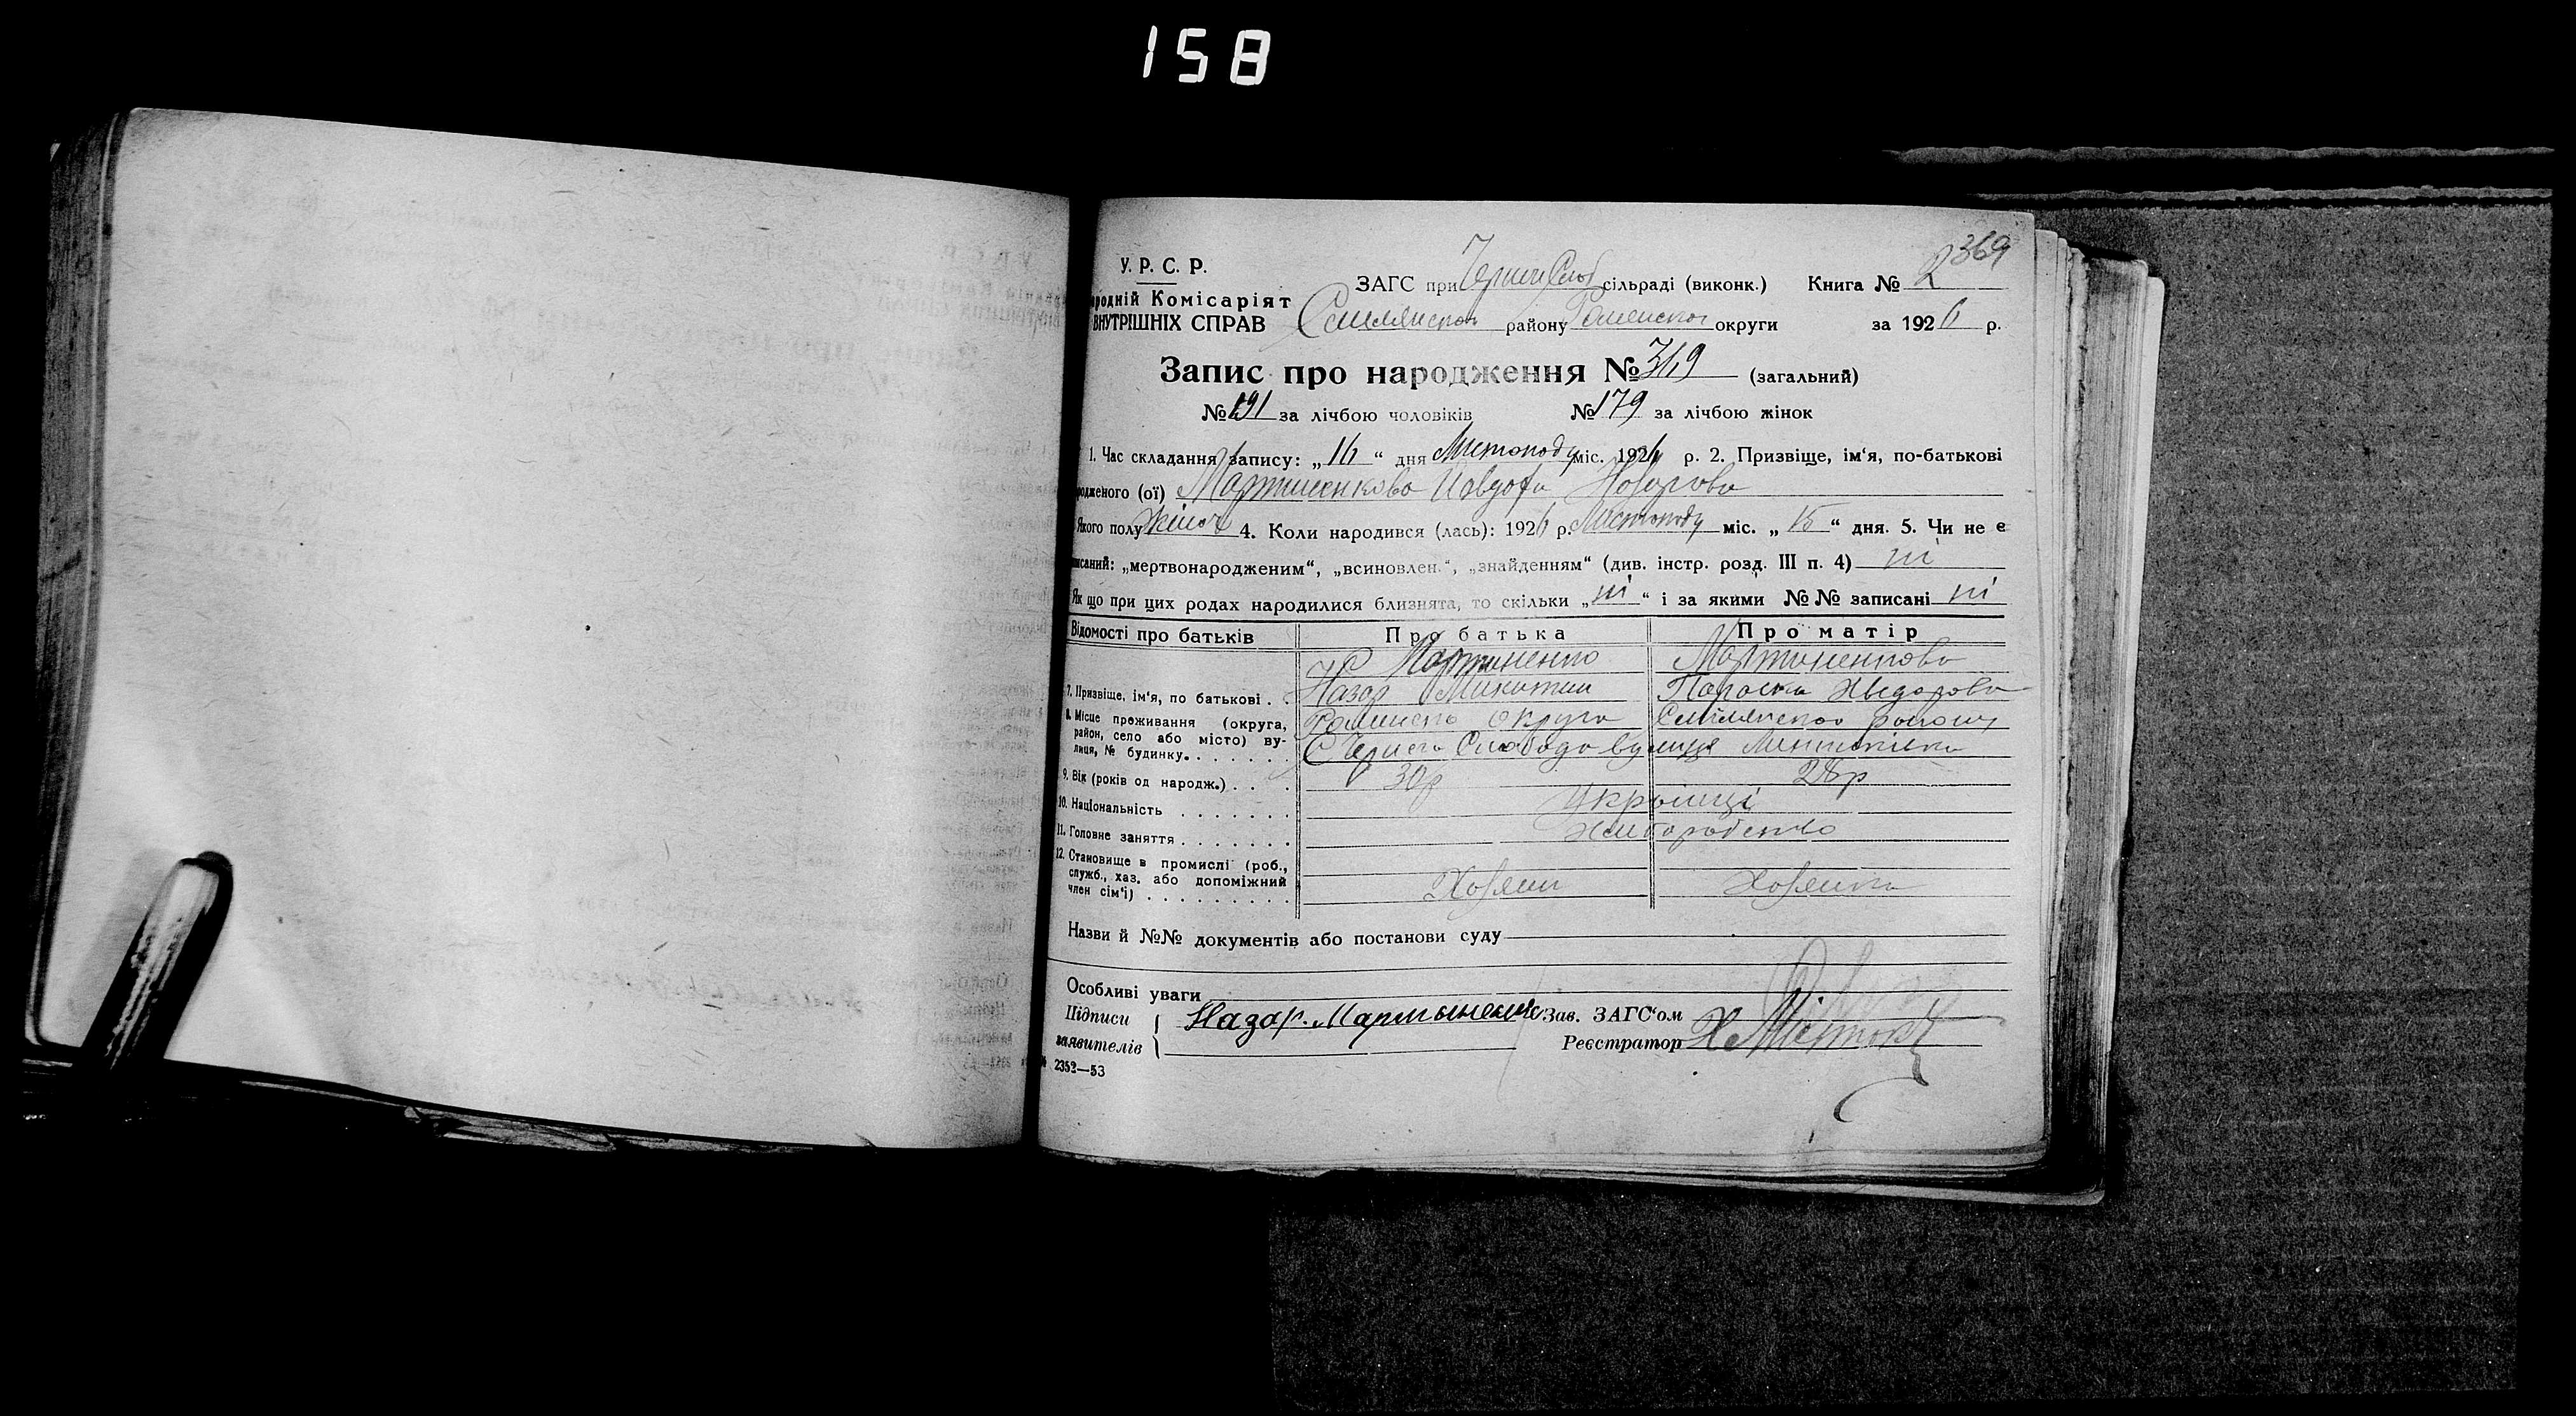 158
369
У. Р. С. Р.
ЗАГС при Черн. Слоб сільраді (виконк.) Книга № 2
родній Комісаріят
ВНУТРІШНІХ СПРАВ
Смілянського району Роменської округи за 1926 р.
Запис про народження № 369 (загальний)
№ 191 за лічбою чоловіків № 179 за лічбою жінок
1. Час складання запису: „16“ дня Листопаду міс. 1926 р. 2. Призвіще, ім'я, по-батькові
родженого (ої) Мартиненкова Назарова
Якого полу жіноч 4. Коли народився (лась): 1926 р. Листопаду міс. „15“ дня. 5. Чи не є
писаний: „мертвонародженим“, „всиновлен.“, „знайденням“ (див. інстр. розд. III п. 4) ні
Як що при цих родах народилися близнята, то скільки „ні“ і за якими №№ записані ні
Відомості про батьків Про батька Про матір
Мартиненко Мартиненкова
7. Призвіще, ім'я, по батькові . . Назар Микитин Параска Хведорова
8. Місце проживання (округа, район, село або місто) вулиця, № будинку. . . . . . .
Роменська округа Смілянского району
С Чернеча Слобода вулиця
9. Вік (років од народж.) . . . 30р 28р
10. Національність . . . . . . . Українці
11. Головне заняття . . . . . . . Хліборобство
12. Становище в промислі (роб.,
служб., хаз. або допоміжний
член сім'ї) . . . . . . . . . Хозяин Хозяйка
Назви й №№ документів або постанови суду
Особливі уваги
Підписи Назар. Мартыненко Зав. ЗАГС'ом
заявителів Реєстратор
2352—53